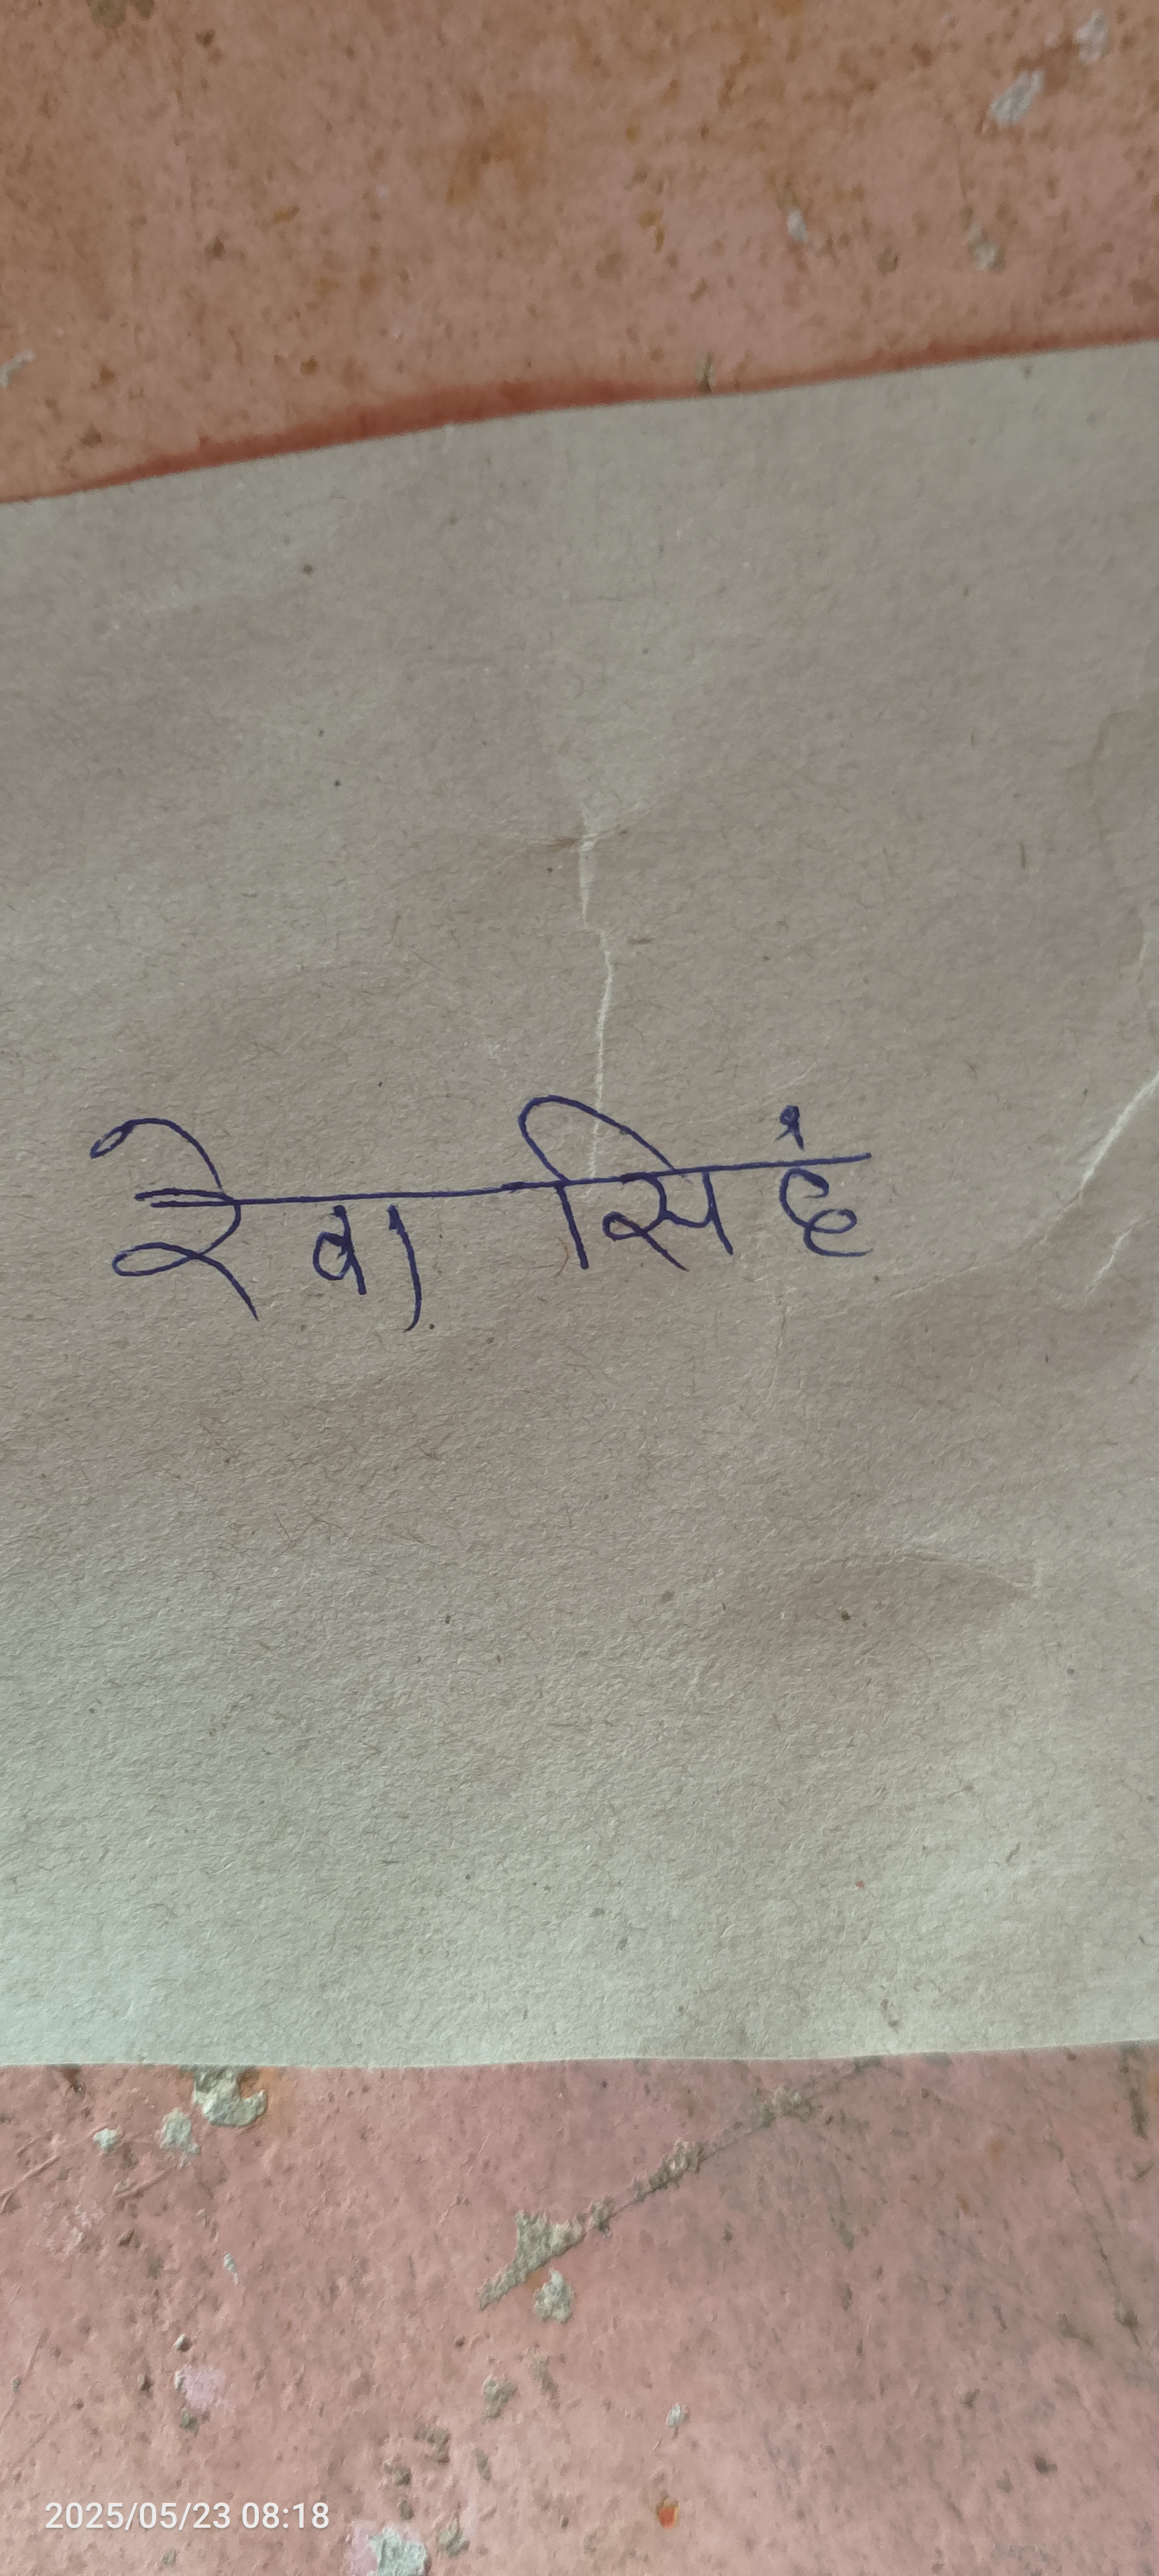 रेवा सिहं
2025/05/23 08:18